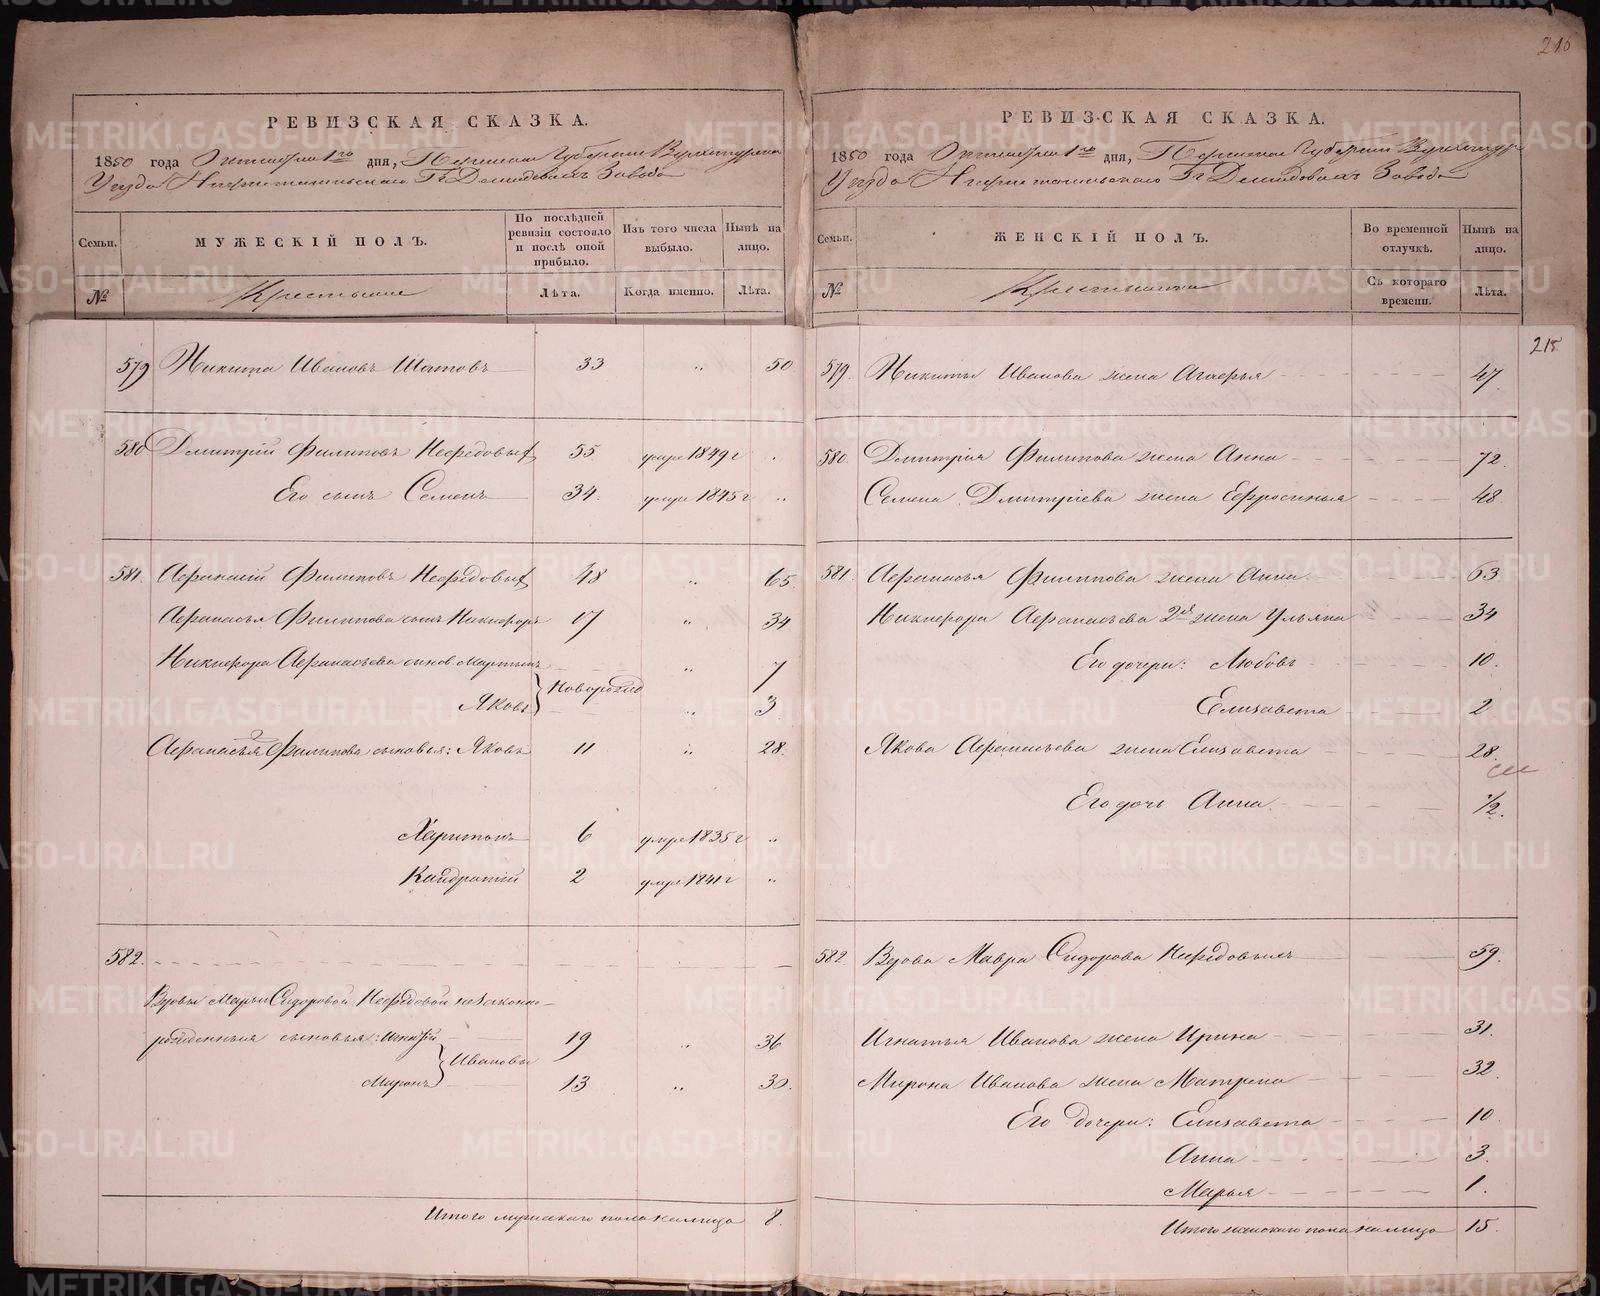 216
РЕВИЗСКАЯ СКАЗКА.
1850 года Октября 1го дня, Пермской Губернии Верхотурска
Уѣзда Нижнетагильскаго Гг Демидовыхъ Завода
Семьи. МУЖЕСКІЙ ПОЛЪ. По послѣдней ревизіи состояло и послѣ оной прибыло. Изъ того числа выбыло. Нынѣ на лицо.
№ Крестьяне Лѣта. Когда именно. Лѣта.
579 Никита Ивановъ Шатовъ 33 " 50
580 Дмитрій Филиповъ Нефедовых 55 умре 1849 г "
Его сынъ Семенъ 34. умре 1845 г "
581. Афанасій Филиповъ Нефедовых 48 " 65
Афанасья Филипова сынъ Никифоръ 17 " 34
Никифора Афанасьева синов. Мартынъ " 7
Яковъ Новорожд " 3.
Афанасья Филипова 2 сыновья: Яковъ 11 " 28.
Харитонъ 6 умре 1835 г "
Кандратій 2 умре 1841 г "
582.
Вдовы Мавры Сидоровой Нефедовой незаконно-
рожденныя сыновья: Игнатій 19 " 36
Миронъ Ивановы 13 " 30.
Итого мужескаго пола налицо 8.
РЕВИЗСКАЯ СКАЗКА.
1850 года Октября 1го дня, Пермской Губерніи Верхотур
Уѣзда Нижнетагильскаго Гг Демидовыхъ Завода
Семьи. ЖЕНСКІЙ ПОЛЪ. Во временной отлучкѣ. Нынѣ на лицо.
№ Крестьянки Съ котораго времени. Лѣта.
215
579. Никиты Иванова жена Агафья 47
580. Дмитрія Филипова жена Анна 72.
Семена Дмитріева жена Ефросинья 48
581 Афанасья Филипова жена Анна 63
Никифора Афанасьева 2я жена Ульяна 34
Его дочери: Любовь 10.
Елизавета 2
Якова Афанасьева жена Елизавета 28.
Его дочь Анна 1/2.
582. Вдова Мавра Сидорова Нефедовыхъ 59.
Игнатья Иванова жена Ирина 31.
Мирона Иванова жена Матрена 32
Его дочери: Елизавета 10.
Анна 3.
Марья 1.
Итого женскаго пола налицо 15.
METRIKI.GASO-URAL.RU